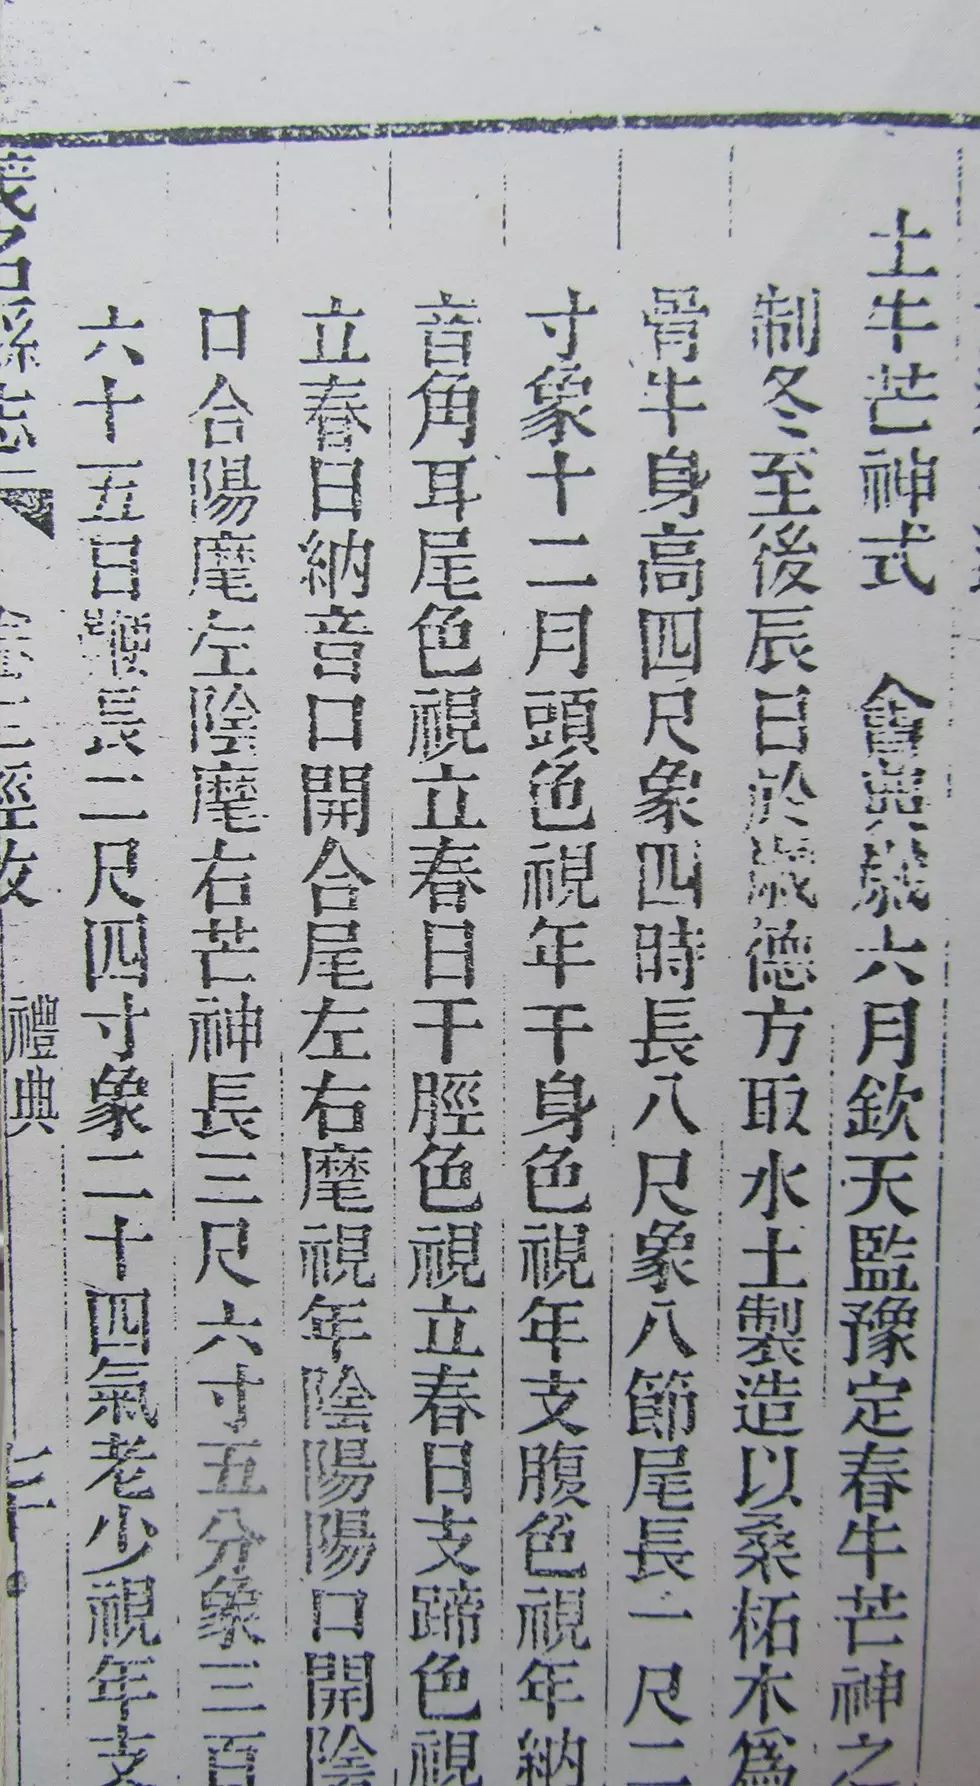 土牛芒神式　會典歲六月欽天監豫定春牛芒神之
制冬至後辰日於歲德方取水土製造以桑柘木爲
骨牛身高四尺象四時長八尺象八節尾長一尺二
寸象十二月頭色視年干身色視年支腹色視年納
音角耳尾色視立春日干脛色視立春日支蹄色視
立春日納音口開合尾左右麾視年陰陽陽口開陰
口合陽麾左陰麾右芒神長三尺六寸五分象三百
六十五日鞭長二尺四寸象二十四氣老少視年支
縣志 禮典